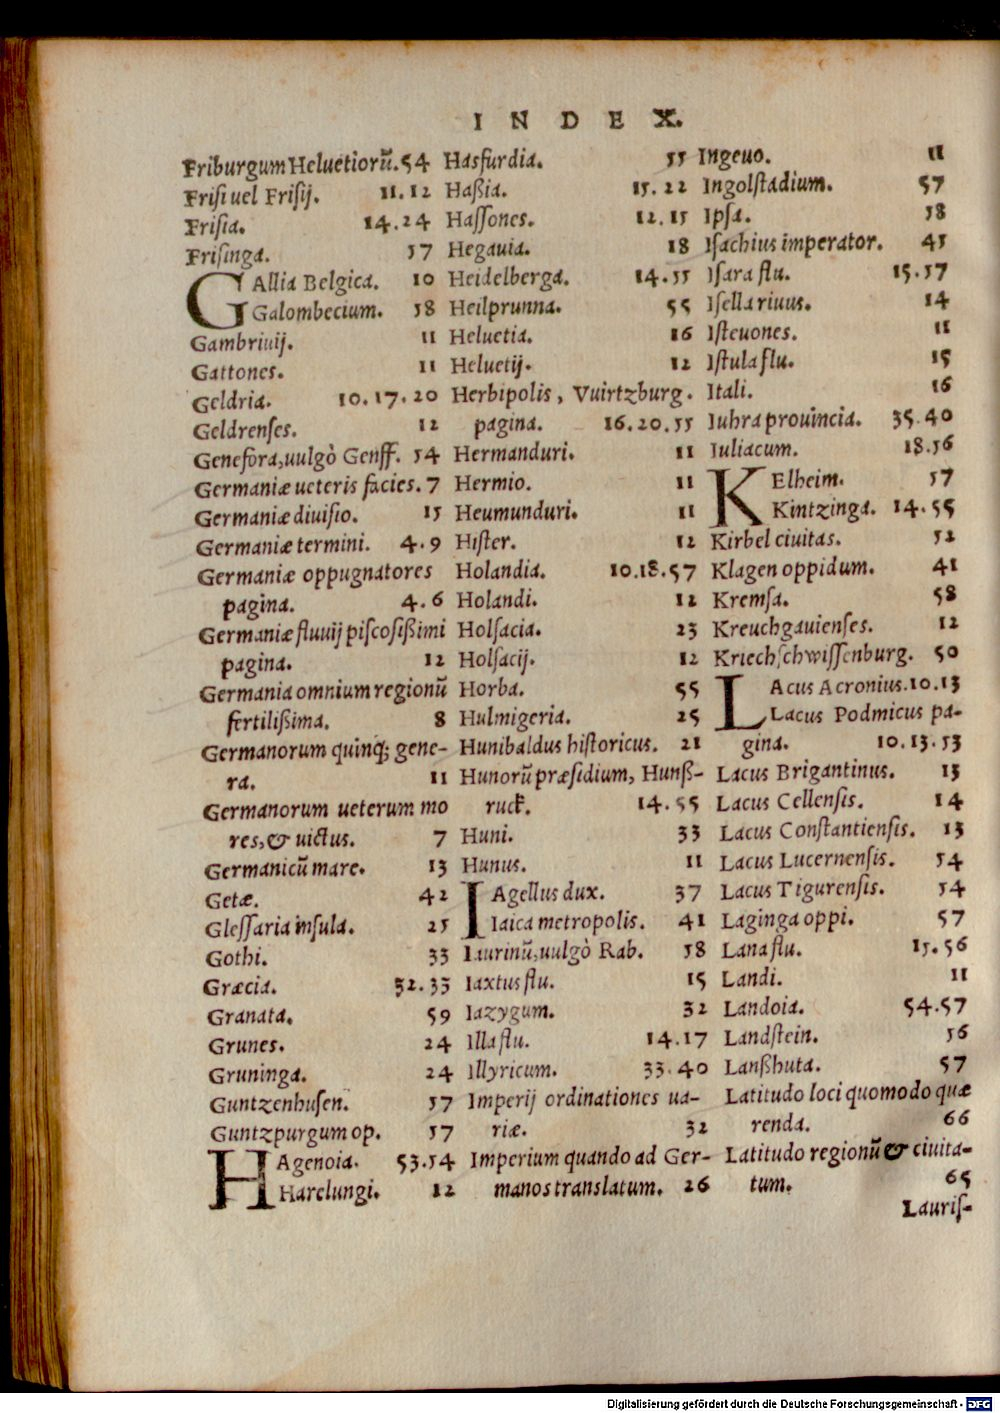 INDEX.
Friburgum Heluetiorū. 54
Frisi uel Frisij. 11.12
Frisia. 14.24
Frisinga. 57
GAllia Belgica. 10
Galombecium. 58
Gambriuij. 11
Gattones. 11
Geldria. 10.17.20
Geldrenses. 12
Genefora, uulgò Genff. 54
Germaniæ ueteris facies. 7
Germaniæ diuisio. 15
Germaniæ termini. 4.9
Germaniæ oppugnatores
pagina. 4.6
Germaniæ fluuij piscosißimi
pagina. 12
Germania omnium regionū
fertilißima. 8
Germanorum quinq; gene-
ra. 11
Germanorum ueterum mo
res, & uictus. 7
Germanicū mare. 13
Getæ. 42
Glessaria insula. 25
Gothi. 33
Græcia. 32.33
Granata. 59
Grunes. 24
Gruninga. 24
Guntzenhusen. 57
Guntzpurgum op. 57
HAgenoia. 53.54
Harelungi. 12
Hasfurdia. 55
Haßia. 15.22
Hassones. 12.15
Hegauia. 18
Heidelberga. 14.55
Heilprunna. 55
Heluetia. 16
Heluetij. 12
Herbipolis, Vuirtzburg.
pagina. 16.20.55
Hermanduri. 11
Hermio. 11
Heumunduri. 11
Hister. 12
Holandia. 10.18.57
Holandi. 12
Holsacia. 23
Holsacij. 12
Horba. 55
Hulmigeria. 25
Hunibaldus historicus. 21
Hunorū præsidium, Hunß-
ruck. 14.55
Huni. 33
Hunus. 11
IAgellus dux. 37
Iaica metropolis. 41
Iaurinū, uulgò Rab. 58
Iaxtus flu. 15
Iazygum. 32
Illa flu. 14.17
Illyricum. 33.40
Imperij ordinationes ua-
riæ. 32
Imperium quando ad Ger-
manos translatum. 26
Ingeuo. 11
Ingolstadium. 57
Ipsa. 58
Isachius imperator. 45
Isara flu. 15.57
Isella riuus. 14
Isteuones. 11
Istula flu. 15
Itali. 16
Iuhra prouincia. 35.40
Iuliacum. 18.56
KElheim. 57
Kintzinga. 14.55
Kirbel ciuitas. 52
Klagen oppidum. 41
Kremsa. 58
Kreuchgauienses. 12
Kriechschwissenburg. 50
LAcus Acronius. 10.13
Lacus Podmicus pa-
gina. 10.13.53
Lacus Brigantinus. 13
Lacus Cellensis. 14
Lacus Constantiensis. 13
Lacus Lucernensis. 54
Lacus Tigurensis. 54
Laginga oppi. 57
Lana flu. 15.56
Landi. 11
Landoia. 54.57
Landstein. 56
Lanßhuta. 57
Latitudo loci quomodo quæ
renda. 66
Latitudo regionū & ciuita-
tum. 65
Lauris-
Digitalisierung gefördert durch die Deutsche Forschungsgemeinschaft - DFG